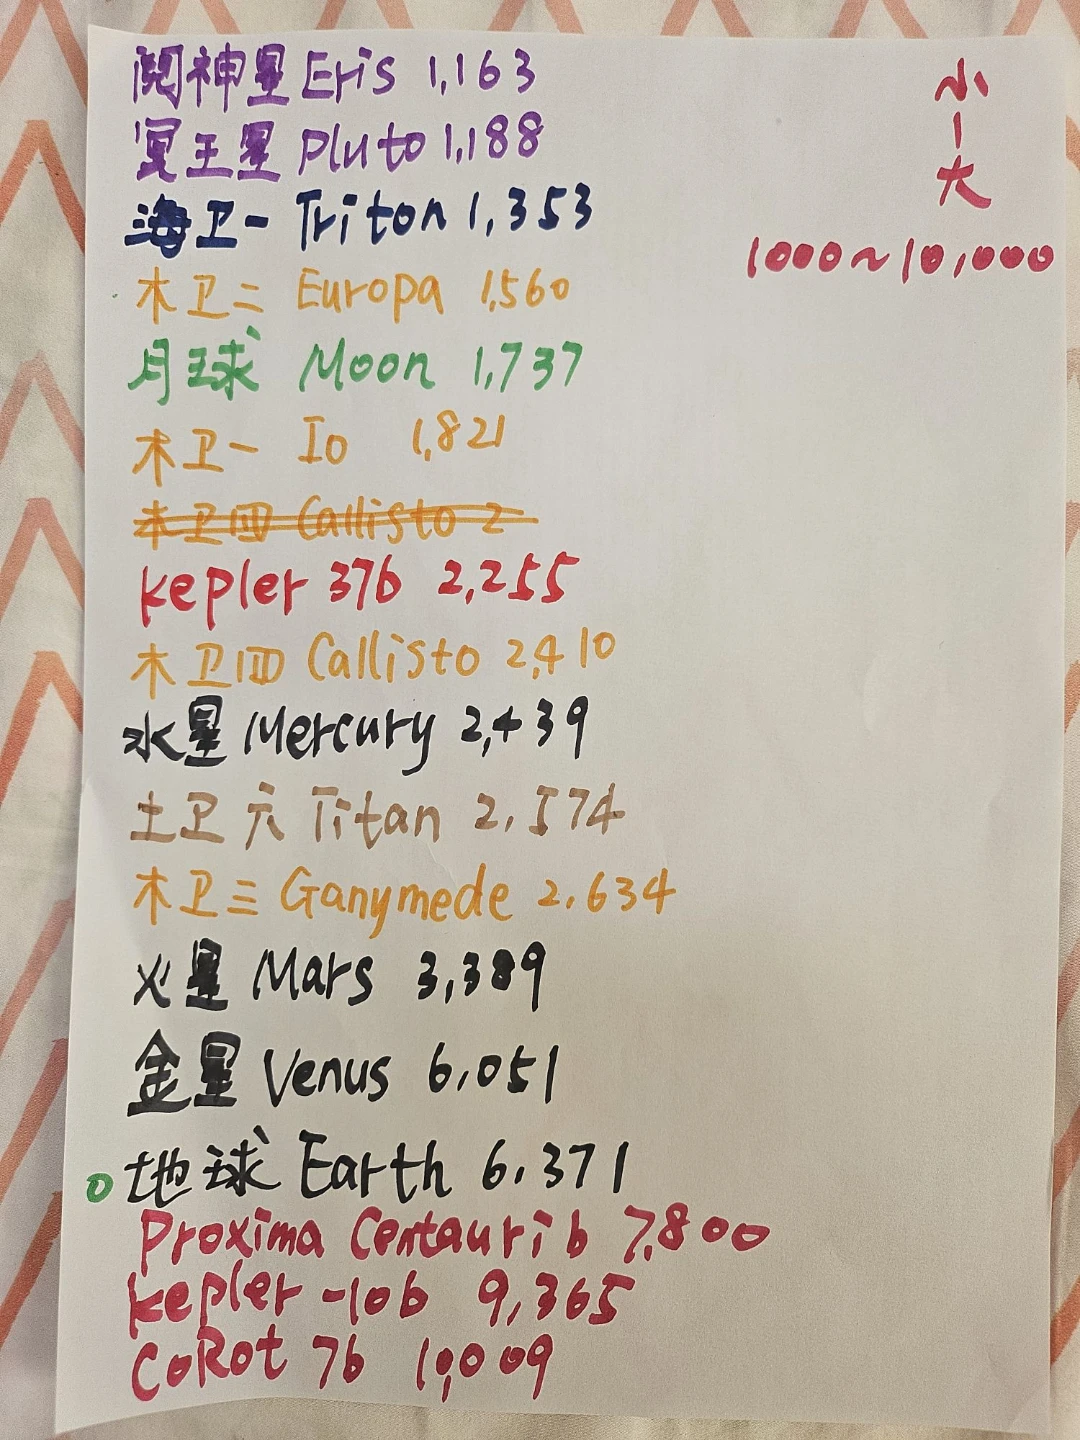 阋神星 Eris 1,163
冥王星 Pluto 1,188
海卫一 Triton 1,353
木卫二 Europa 1,560
月球 Moon 1,737
木卫一 Io 1,821
木卫四 Callisto 2
Kepler 37b 2,255
木卫四 Callisto 2,410
水星 Mercury 2,439
土卫六 Titan 2,574
木卫三 Ganymede 2,634
火星 Mars 3,389
金星 Venus 6,051
地球 Earth 6,371
Proxima Centauri b 7,800
Kepler -10b 9,365
CoRot 7b 10,009
小
|
大
1000~10,000